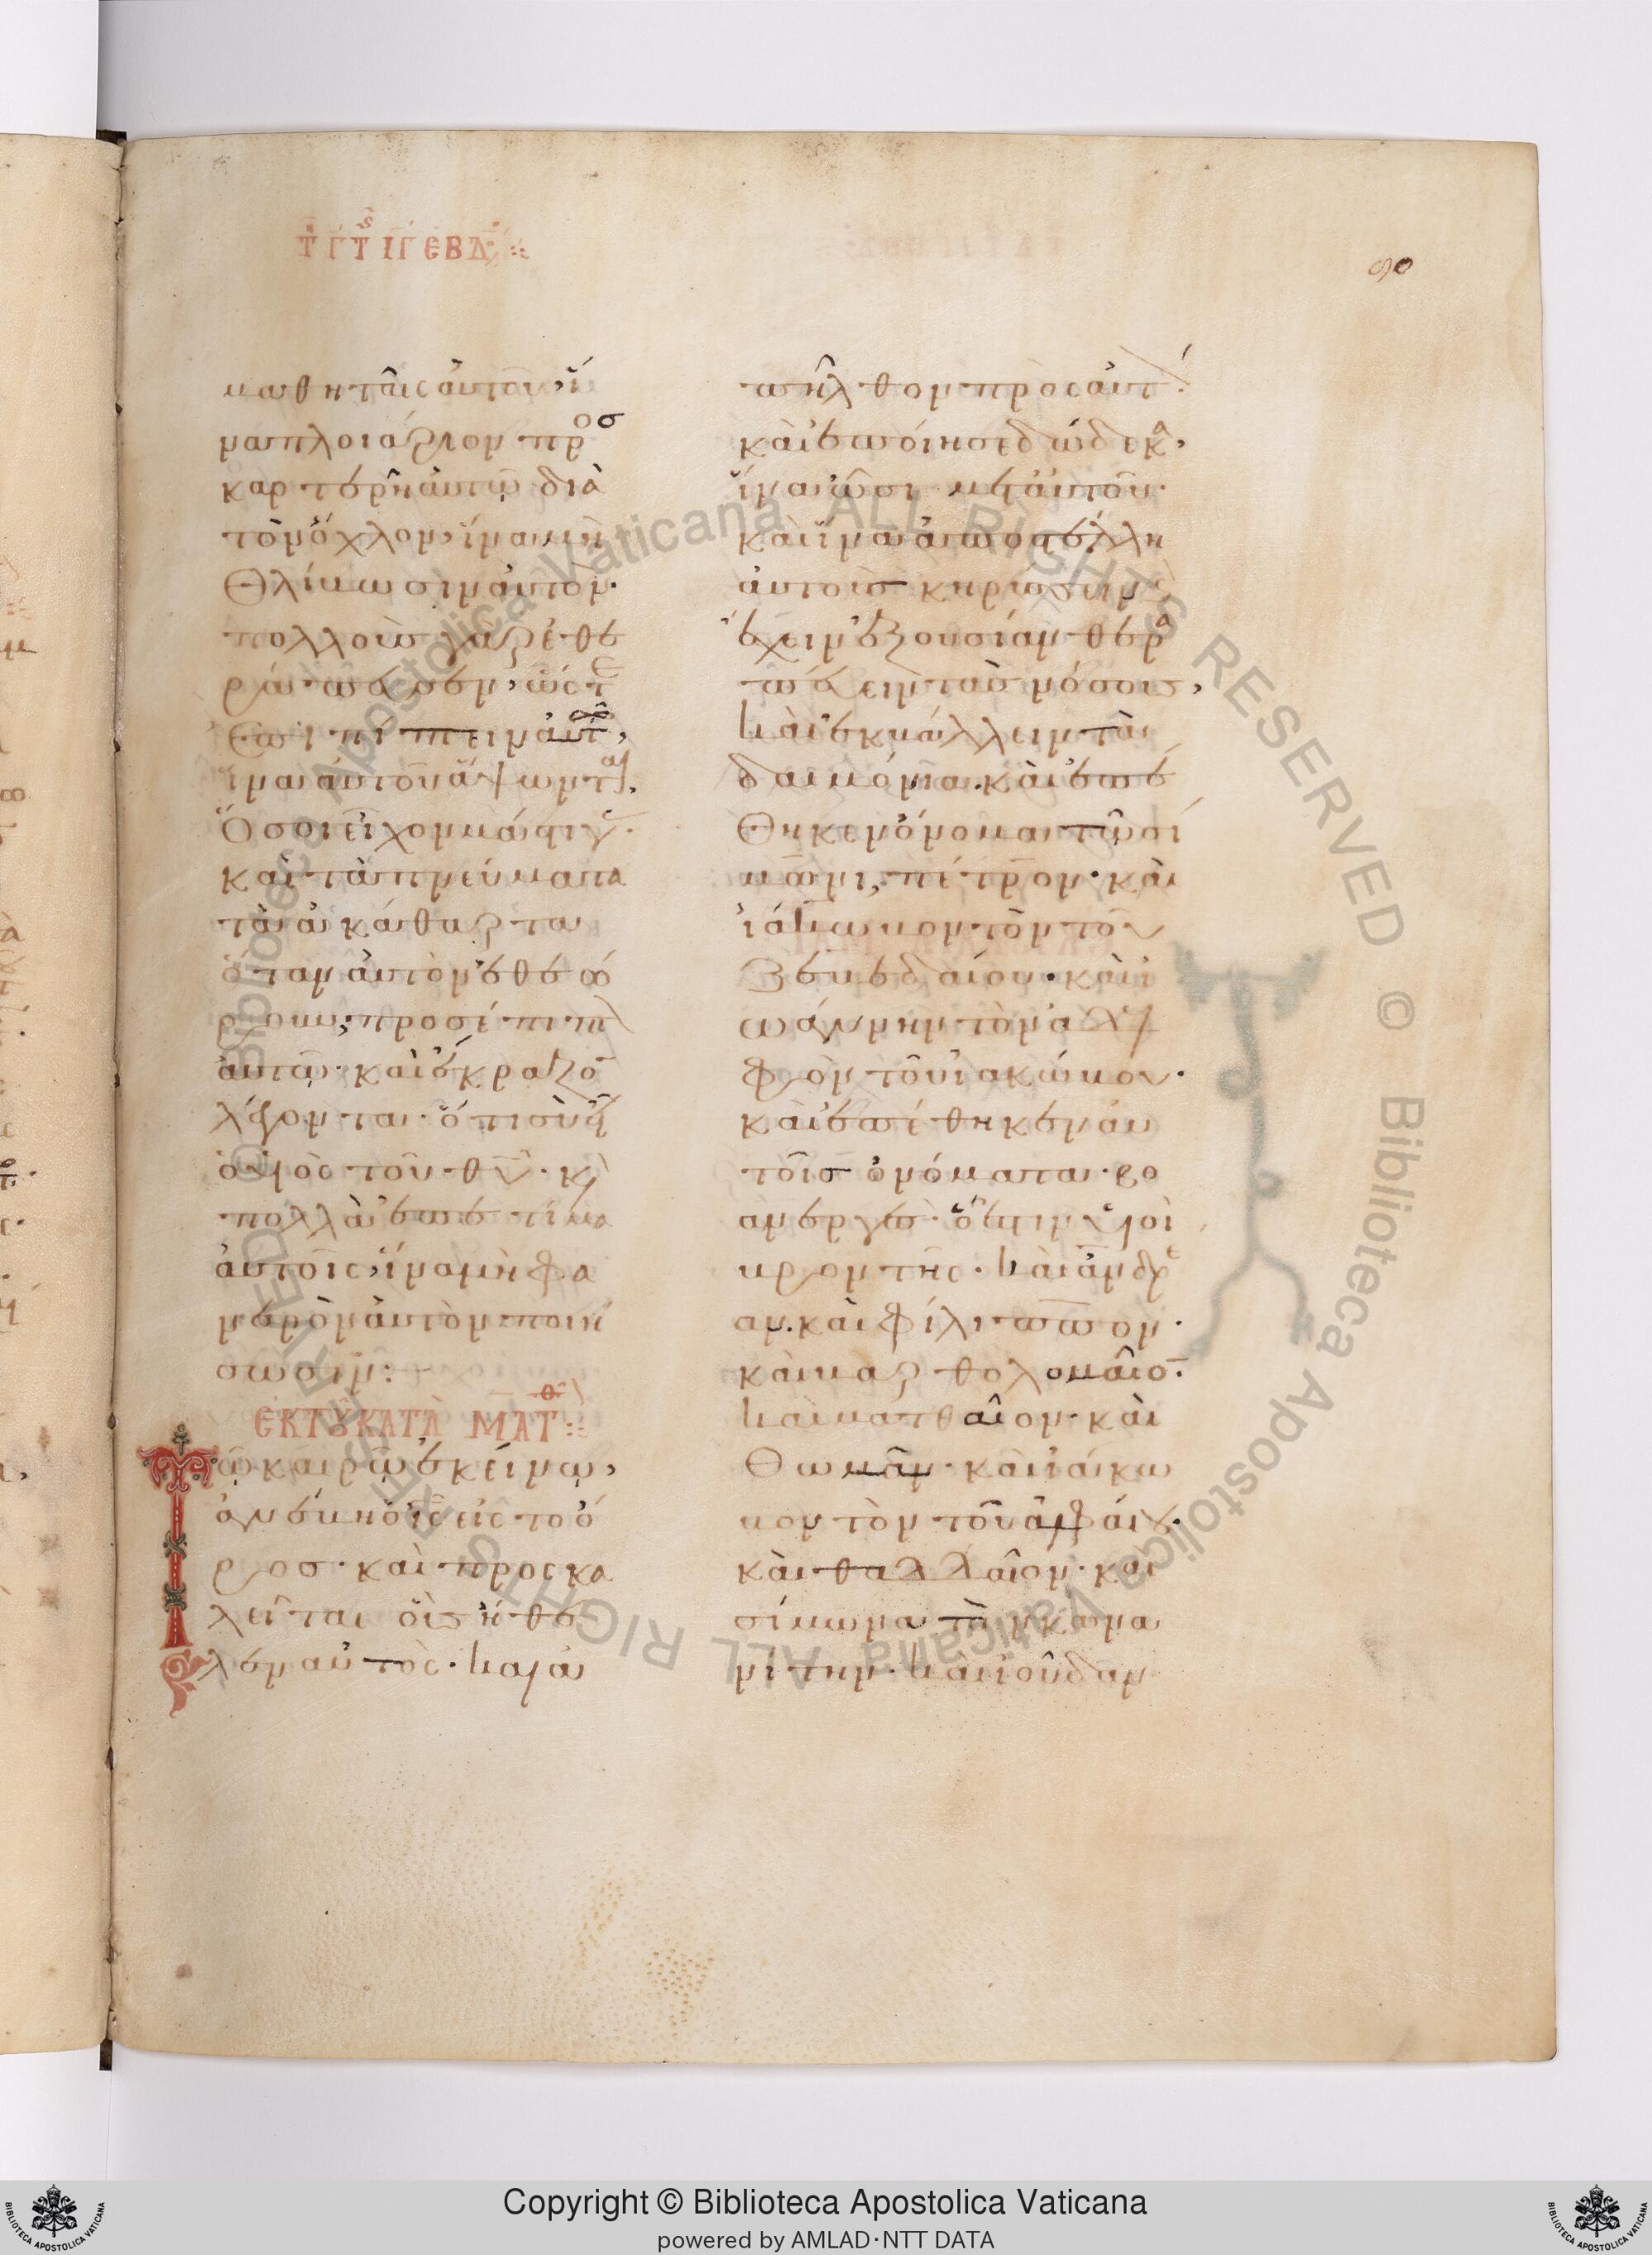 Τῇ Γ τῆς ΙΓ ἑβδ
90
μαθηταῖς αὐτοῦ, ἵ
να πλοιάριον προσ
καρτερῆ αὐτῶ διὰ
τὸν ὄχλον, ἵνα μὴ
θλίβωσιν αὐτόν·
πολλοὺς γὰρ ἐθε
ράπευσεν, ὥστε
ἐπιπίπτειν αὐτῶ,
ἵνα αὐτοῦ ἅψωνται,
ὅσοι εἶχον μάστιγας·
καὶ τὰ πνεύματα
τὰ ἀκάθαρτα
ὅταν αὐτὸν ἐθεώ
ρουν, προσέπιπτ
αὐτῶ· καὶ ἔκραζον
λέγονται· ὅτι σὺ εἶ
ὁ υἱὸς τοῦ θυ· καὶ
πολλὰ ἐπετίμα
αὐτοῖς, ἵνα μὴ φα
νερὸν αὐτὸν ποιή
σωσιν:
ΕΚ ΤΟΥ ΚΑΤΑ ΜΑΤΘ
Τῶ καιρῶ ἐκείνω,
ἀνέβη ὁ ις εἰς τὸ ὄ
ρος· καὶ προσκα
λεῖται οὓς ἤθε
λεν αὐτός· καὶ ἀ
πῆλθον πρὸς αὐτ
καὶ ἐποίησε δώδεκα,
ἵνα ὦσι μετ αὐτοῦ·
καὶ ἵνα ἀποστέλλη
αὐτοὺς κηρύσσειν
ἔχειν ἐξουσίαν θερα
πεύειν τὰς νόσους,
καὶ ἐκβάλλειν τὰ
δαιμόνια· καὶ ἐπέ
θηκεν ὄνομα τῶ σί
μωνι, πέτρον· καὶ
ἰάκωβον τὸν τοῦ
ζεβεδαίου· καὶ ἰ
ωάννην τὸν ἀδελ
φὸν τοῦ ἰακώβου·
καὶ ἐπέθηκεν αὐ
τοῖς ὀνόματα· βο
ανεργὲς· ὅ ἐστιν υἱοὶ
βροντῆς· καὶ ἀνδρέ
αν· καὶ φίλιππον·
καὶ βαρθολομαῖον·
καὶ ματθαῖον· καὶ
θωμᾶν· καὶ ἰάκω
βον τὸν τοῦ ἀλφαίου·
καὶ θαδδαῖον· καὶ
σίμωνα τὸν κανα
νίτην· καὶ ἰούδαν
Copyright © Biblioteca Apostolica Vaticana
powered by AMLAD·NTT DATA